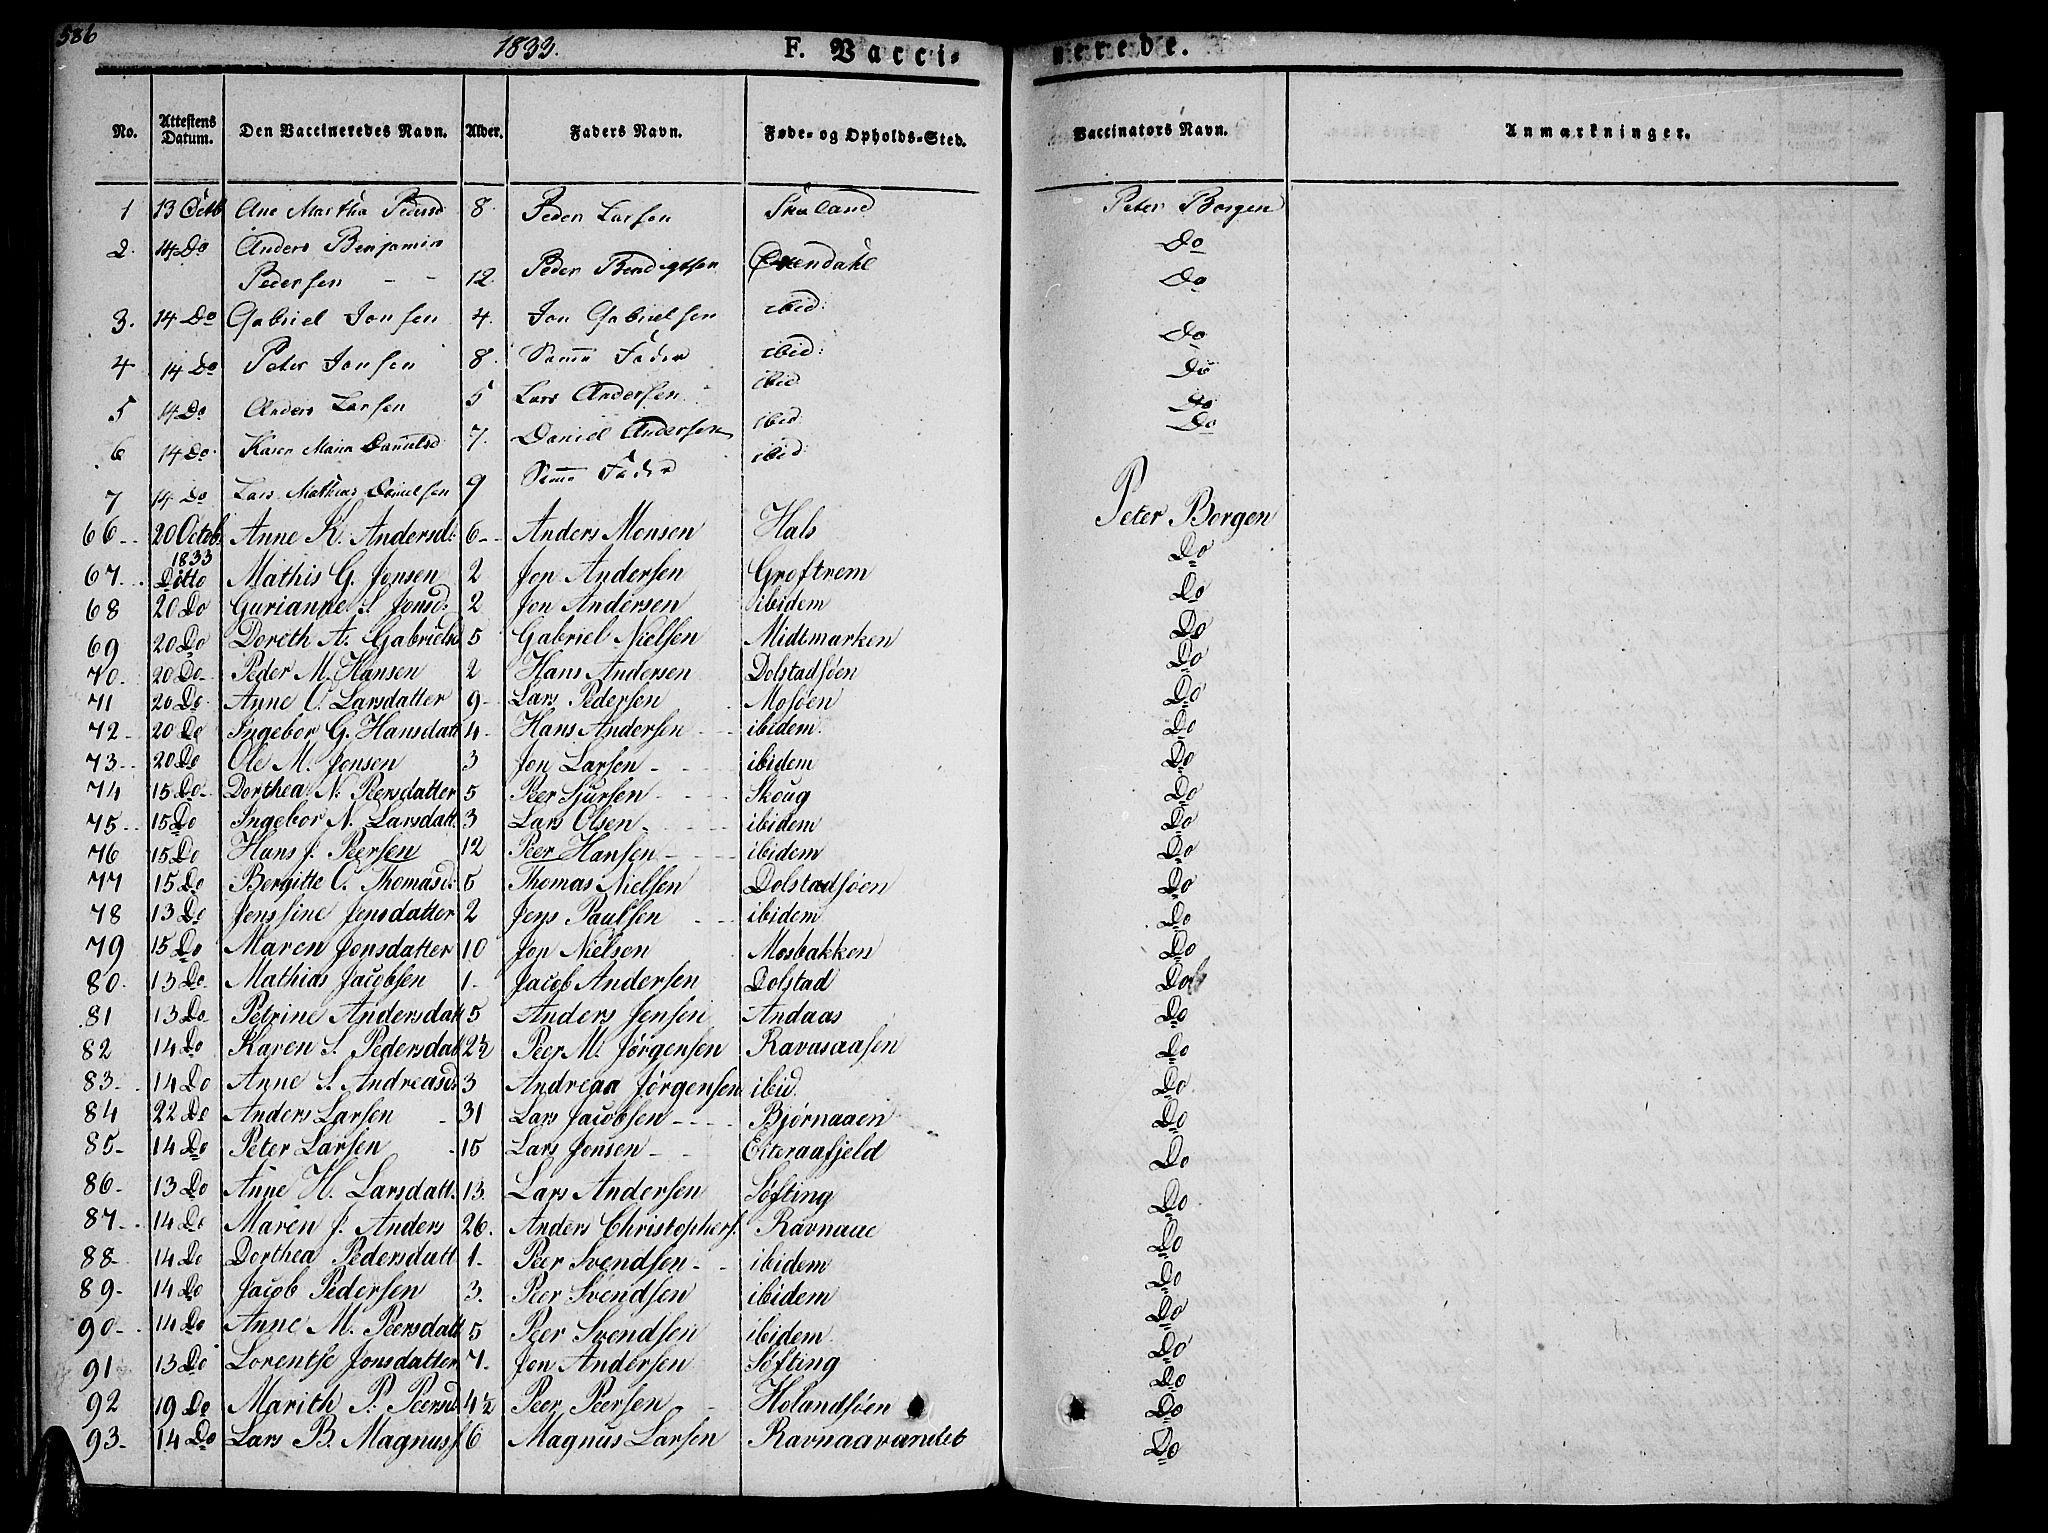 586
1833. F. Vaccinerede.
No. Attestens Datum. Den Vaccineredes Navn. Alder. Faders Navn. Føde- og Opholds-Sted. Vaccinators Navn. Anmærkninger.
1 13 Octb Ane Martha Pedersd 8. Peder Larsen Peter Borgen
2. 14 Do Anders Benjamin Do
Pedersen - - 12. Peder Bendigtsen Øxendahl Do
3. 14 Do Gabriel Jonsen 4. Jon Gabrielsen ibid: Do
4 14 Do Peter Jonsen 8. Samme Fader ibid: Do
5 14 Do Anders Larsen 5 Lars Andersen ibid Do
6 14 Do Karen Maria Danielsd 7. Daniel Andersen ibid Do
7 14 Do Lars Mathias Danielsen 9 Samme Fader ibid
66 20 Octob. 1833 Anne K. Andersd: 6 Anders Monsen Hals Peter Borgen
67 Ditto Mathis G. Jonsen 2 Jon Andersen Groftrem Do
68 20 Do Gurianne S Jonsd: 2 Jon Andersen ibidem Do
69 20 Do Dorith A. Gabrielsd 5 Gabriel Nielsen Midtmarken Do
70 20 Do Peder M. Hansen 2 Hans Andersen Dolstadsøen Do
71 20 Do Anne O. Larsdatter 9 Lars Pedersen Mosøen Do
72 20 Do Ingebor G. Hansdatt 4 Hans Andersen ibidem. Do
73 20 Do Ole M. Jonsen 3 Jon Larsen ibidem Do
74 15 Do Dorthea N. Peersdatter 5 Peer Sjursen Skoug Do
75 15 Do Ingebor N. Larsdatt. 3 Lars Olsen ibidem Do
76 15 Do Hans J. Peersen 12 Peer Hansen ibidem Do
77 15 Do Bergitte C. Thomasd: 5 Thomas Nielsen Dolstadsøen Do
78 13 Do Jenssine Jensdatter 2 Jens Paulsen ibidem Do
79 15 Do Maren Jonsdatter 10 Jon Nielsen Mosbakken Do
80 13 Do Mathias Jacobsen 1 Jacob Andersen Dolstad Do
81 13 Do Petrine Andersdatt 5 Anders Jensen Andaas Do
82 14 Do Karen S. Pedersdat 2½ Peer M. Jørgensen Ravnaasen Do
83 14 Do Anne S. Andreasd: 3 Andreas Jørgensen ibid. Do
84 22 Do Anders Larsen 31 Lars Jacobsen Bjørnaaen Do
85 14 Do Peter Larsen 15 Lars Jensen Elteraafjeld Do
86 13 Do Anne H. Larsdatt. 13. Lars Andersen Søfting Do
87 14 Do Maren J. Anders 26. Anders Christophers. Ravnaae Do
88 14 Do Dorthea Pedersdatt 1 Peer Svendsen ibidem Do
89 14 Do Jacob Pedersen 3. Peer Svendsen ibidem Do
90 14 Do Anne M. Peersdatt 5 Peer Svendsen ibidem Do
91 13 Do Lorentse Jonsdatter 7. Jon Andersen Søfting Do
92 19 Do Marith P. Peersd 4½ Peer Peersen Holandsøen Do
93 14 Do Lars B. Magnuss. 6 Magnus Larsen Ravnaavandet Do